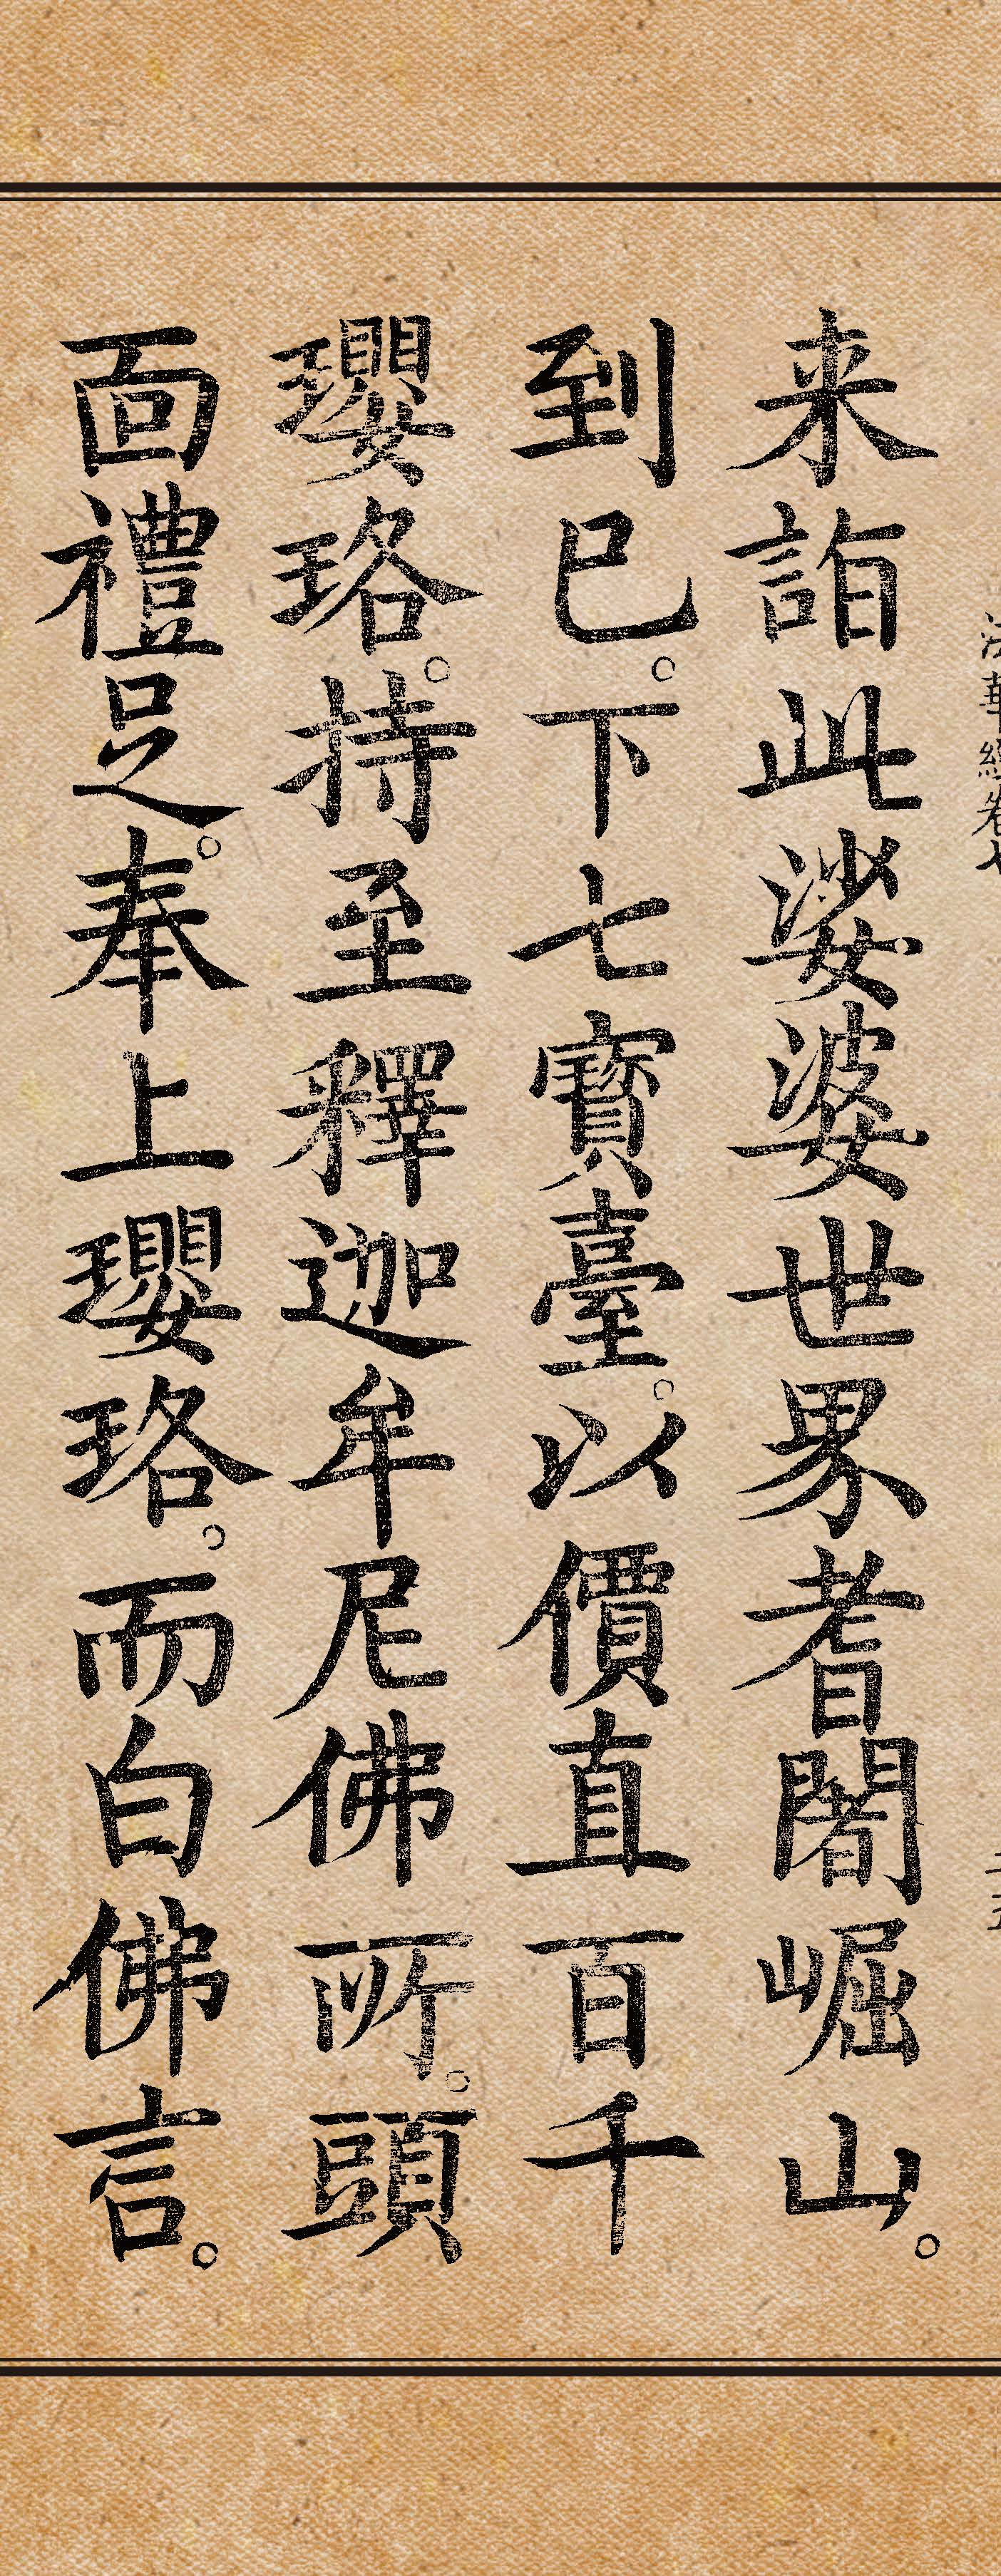 来詣此娑婆世界耆闍崛山。
到已。下七寶臺。以價直百千
瓔珞。持至釋迦牟尼佛所。頭
面禮足。奉上瓔珞。而白佛言。